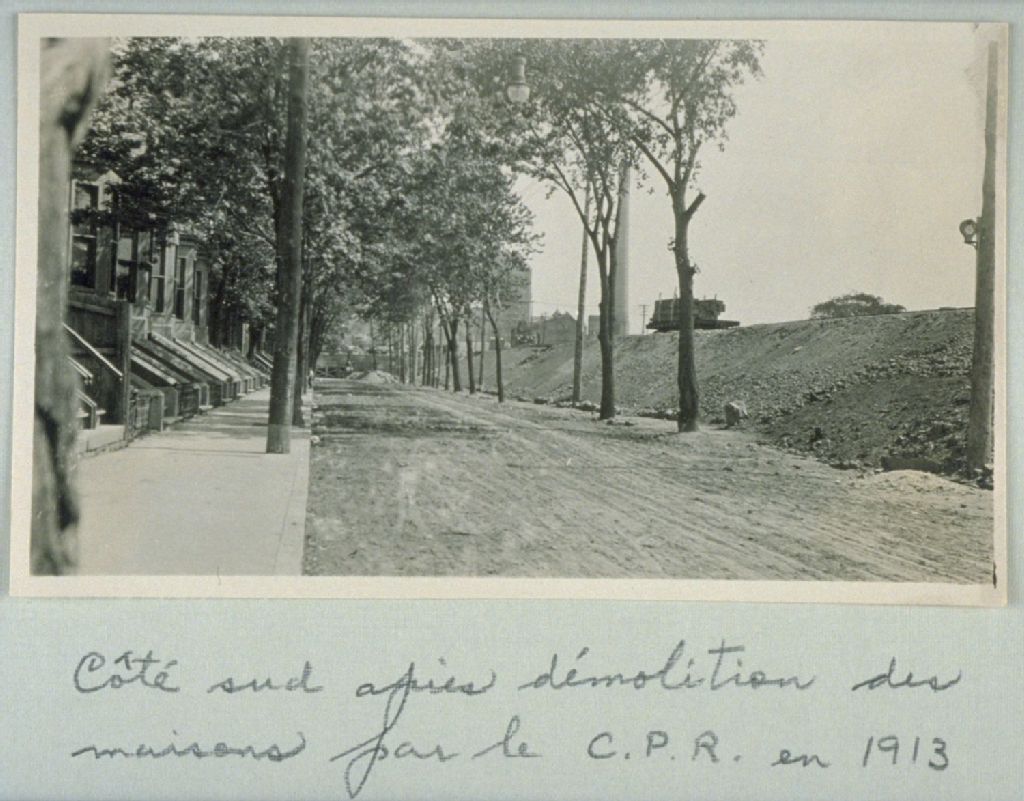 Côté sud après démolition des
maisons par le C.P.R. en 1913